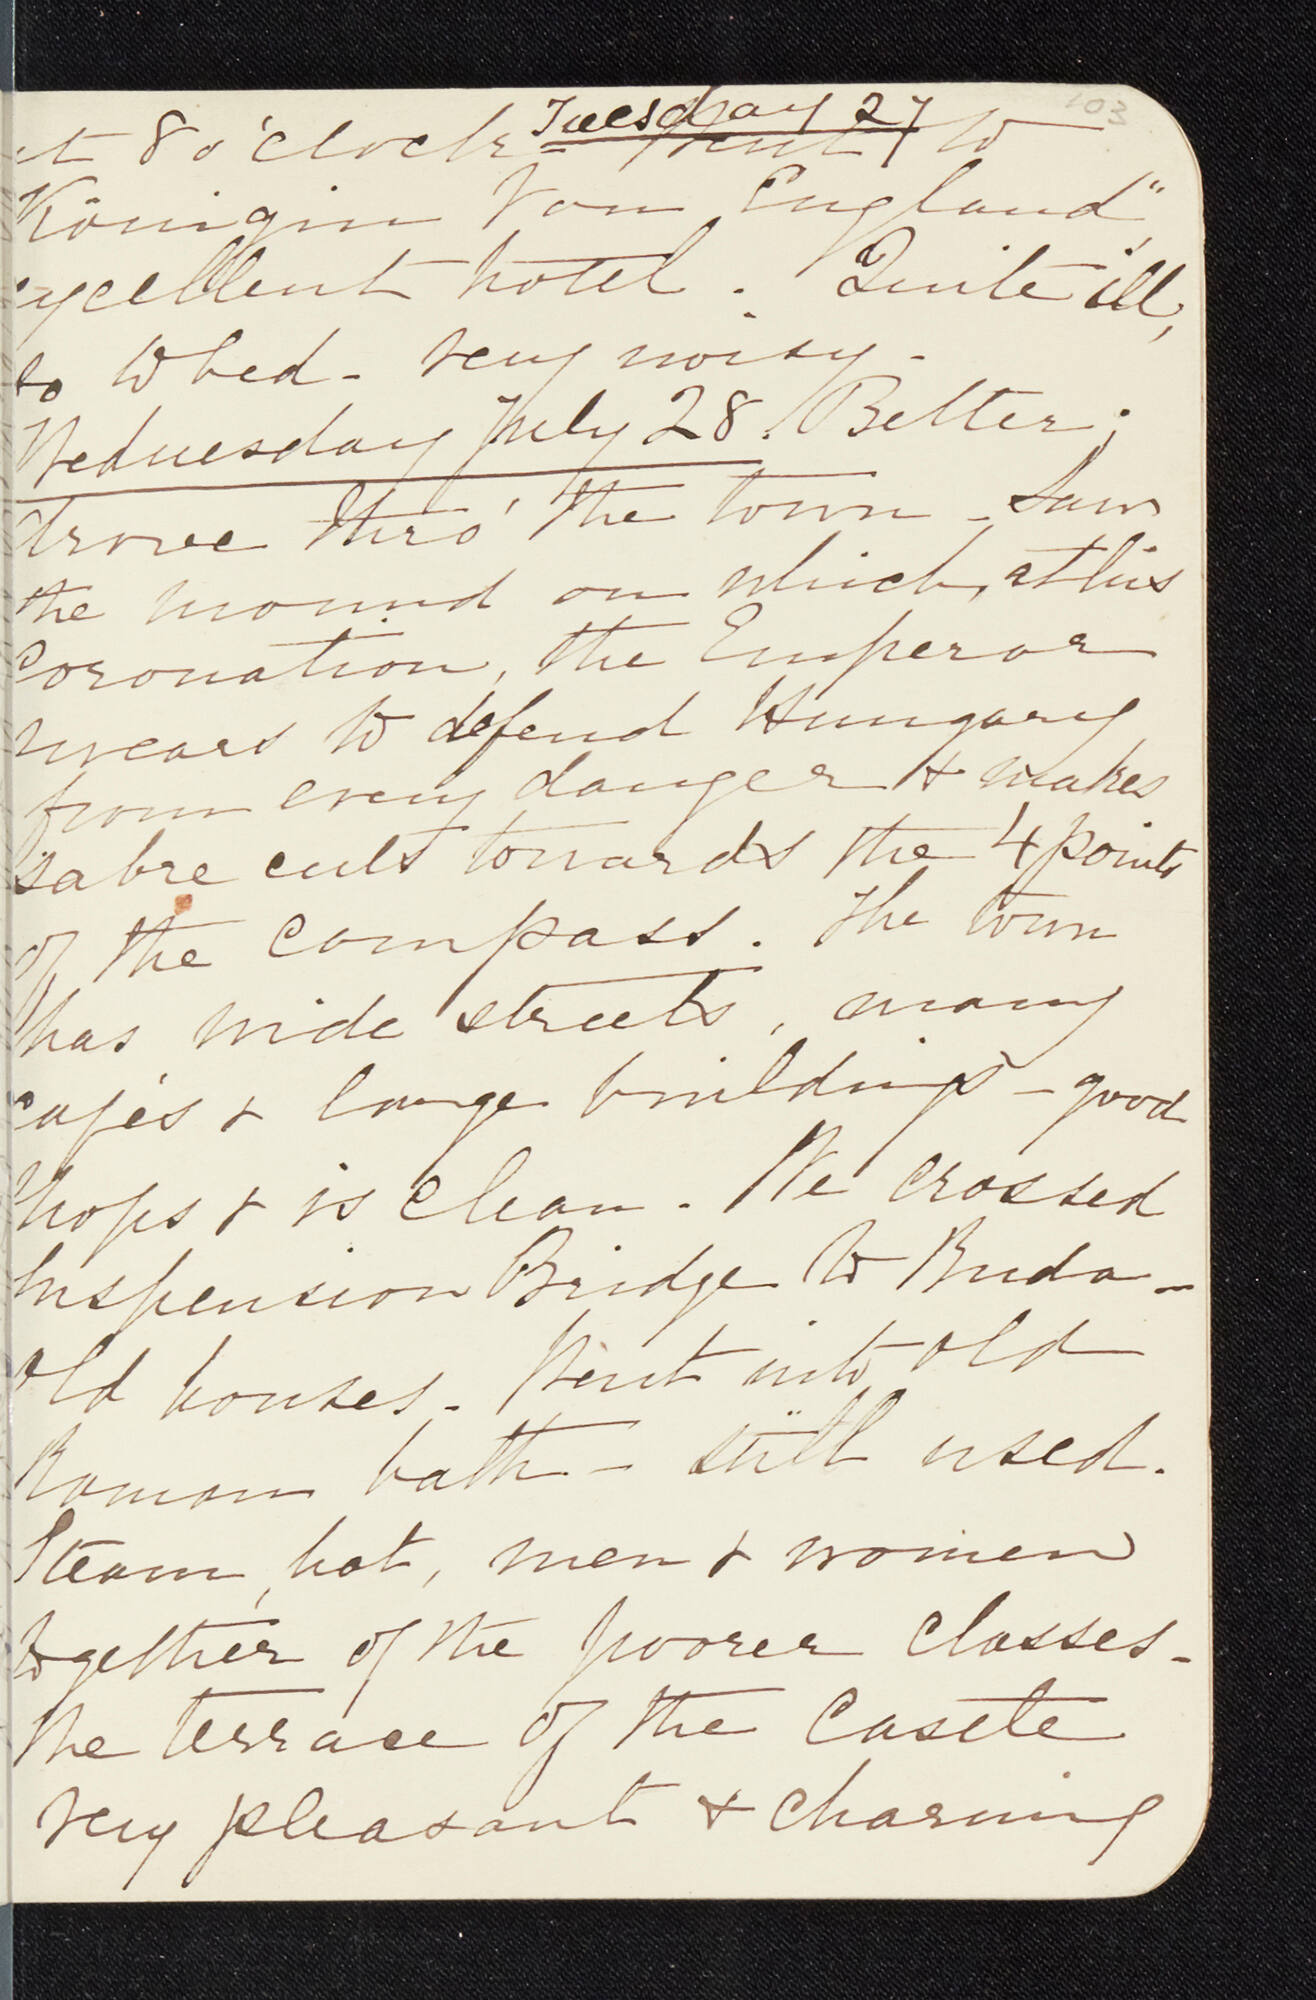 103
Tuesday 27
at 8 o'clock - Went to
"Königin Von England",
excellent hotel. Quite ill,
so to bed - very noisy -
Wednesday July 28. Better;
drove thro' the town - Saw
the mound on which, at his
coronation, the Emperor
swears to defend Hungary
from every danger & makes
sabre cuts towards the 4 points
of the compass. The town
has wide streets, many
cafés & large buildings - good
shops & is clean. We crossed
Suspension Bridge to Buda -
old houses - Went into old
Roman bath - still used.
Steam, hot, men & women
together of the poorer classes -
The terrace of the Castle
very pleasant & charming